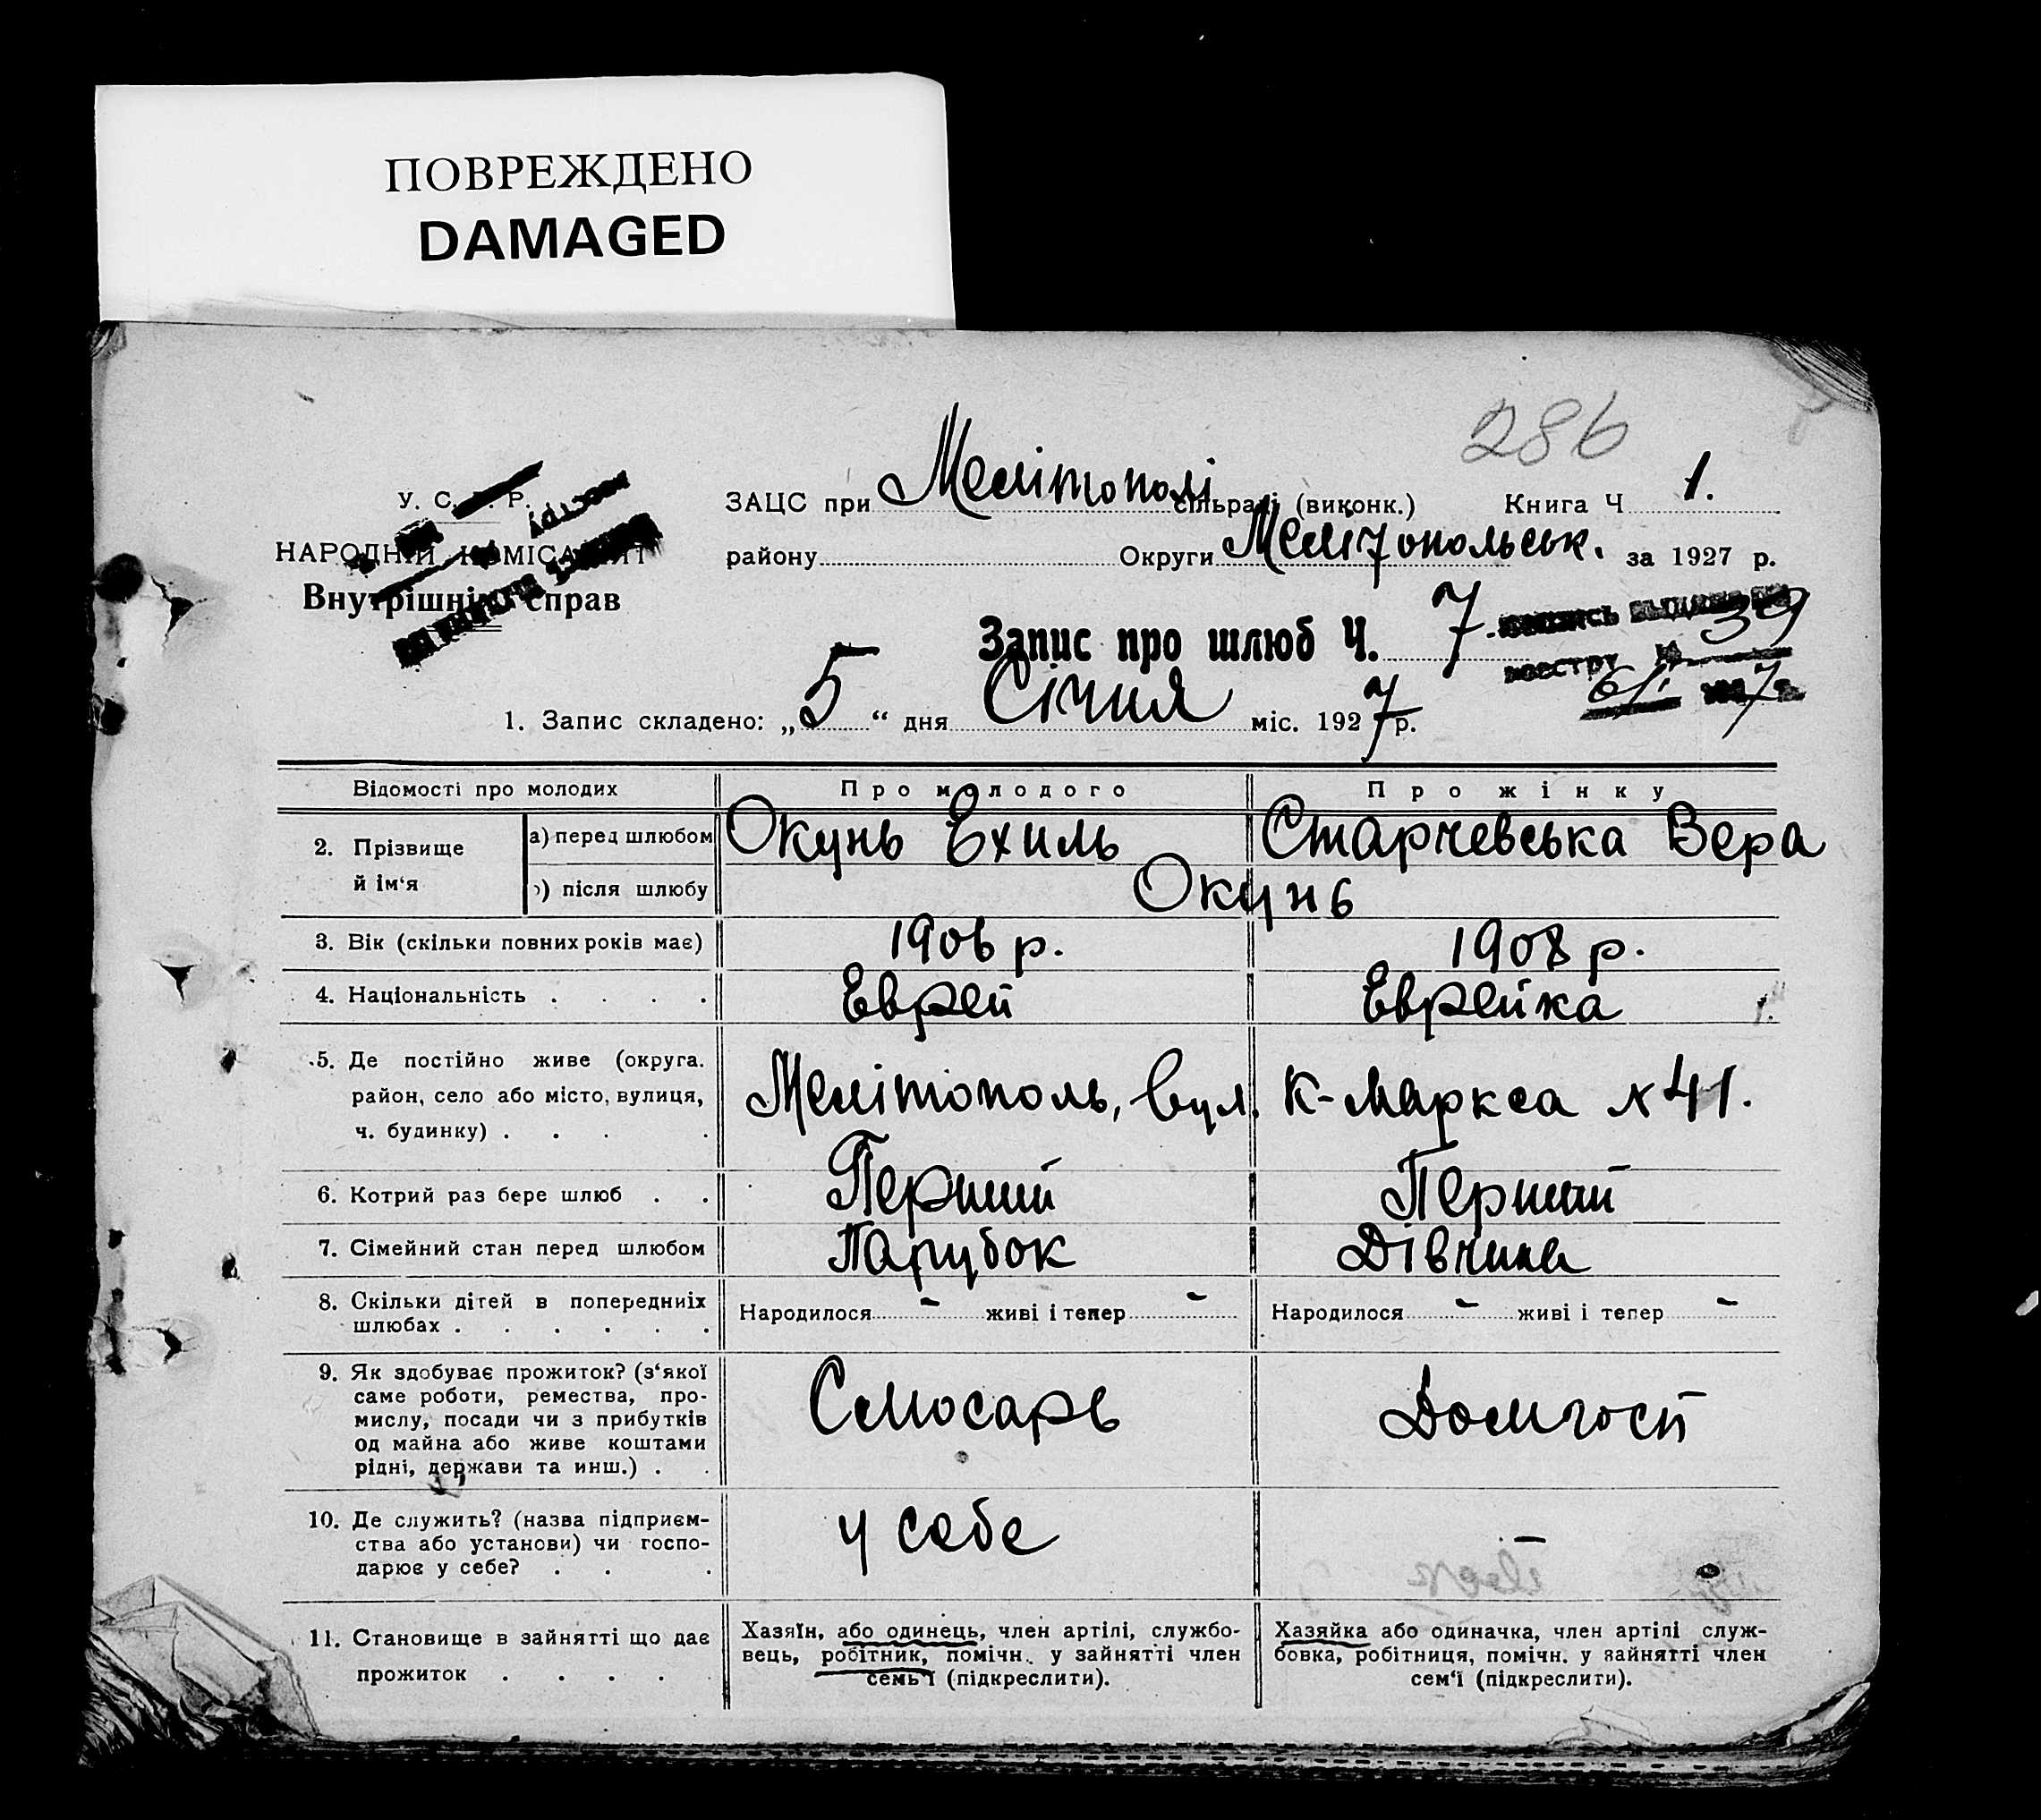 ПОВРЕЖДЕНО
DAMAGED
286
У. С. Р. Р.
ЗАЦС при Мелітополі сільраді (виконк.) Книга Ч 1.
НАРОДНІЙ КОМІСАРІЯТ
району Округи Мелітопольськ. за 1927 р.
Внутрішніх справ
Запис про шлюб Ч. 7.
39
реестру №
6/I 1927 г.
1. Запис складено: „5“ дня Січня міс. 1927 р.
Відомості про молодих Про молодого Про жінку
2. Прізвище й ім‘я
а) перед шлюбом Окунь Ехиль Старчевська Вера
б) після шлюбу Окунь
3. Вік (скільки повних років має) 1906 р. 1908 р.
4. Національність . . . . Еврей Еврейка
5. Де постійно живе (округа.
район, село або місто, вулиця,
ч. будинку) . . . .
Мелітополь, вул. К-Маркса № 41.
6. Котрий раз бере шлюб . . Перший Перший
7. Сімейний стан перед шлюбом Парубок Дівчина
8. Скільки дітей в попередниіх
шлюбах . . . . . .
Народилося - живі і тепер - Народилося - живі і тепер -
9. Як здобуває прожиток? (з‘якої
саме роботи, ремества, про-
мислу, посади чи з прибутків
од майна або живе коштами
рідні, держави та инш.) . .
Слюсарь Домгосп
10. Де служить? (назва підприєм-
ства або установи) чи госпо-
дарює у себе? . . .
у себе -
11. Становище в зайнятті що дає
прожиток . . . . .
Хазяїн, або одинець, член артілі, службо-
вець, робітник, помічн. у зайнятті член
семь‘ї (підкреслити).
Хазяйка або одиначка, член артілі служ-
бовка, робітниця, помічн. у зайнятті член
сем‘ї (підкреслити).